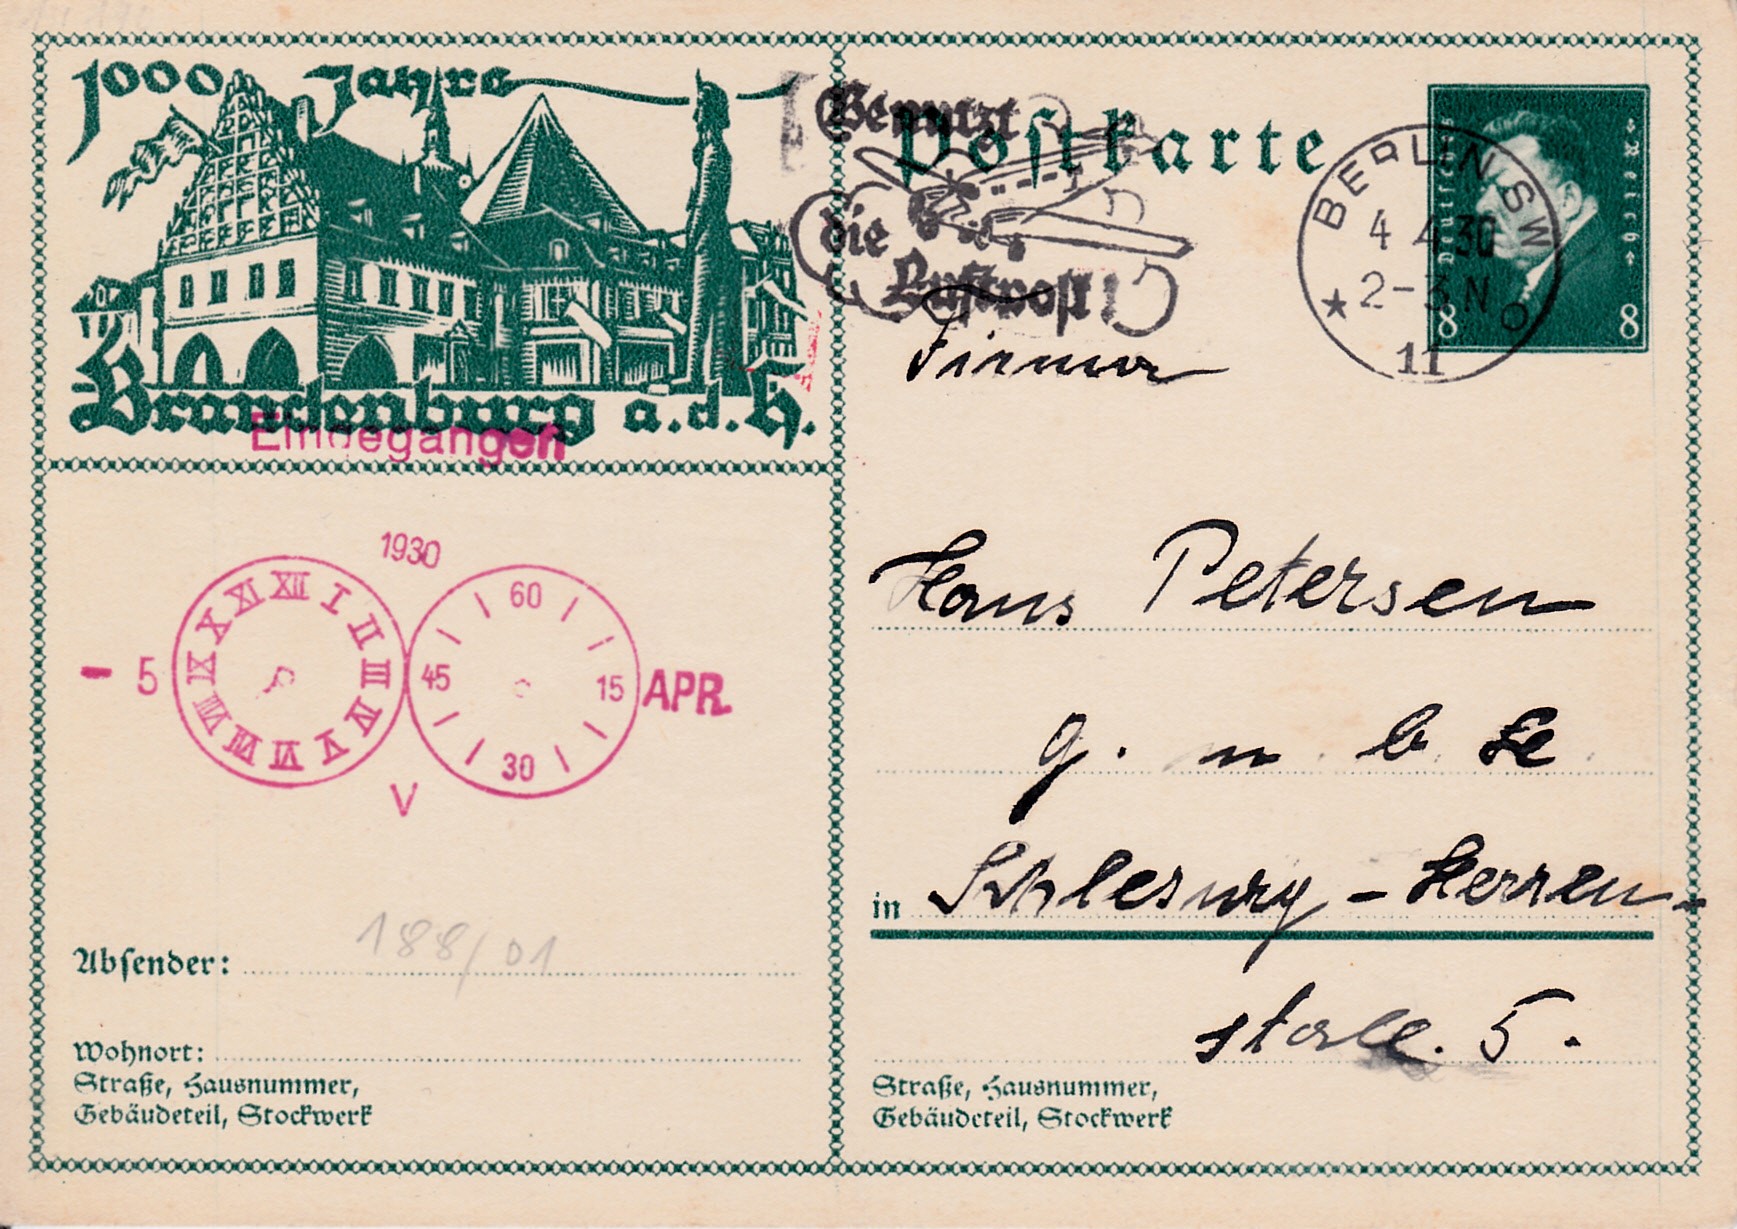 1000 Jahre
Brandenburg a.d.H.
Postkarte
Benutzt
die
Luftpost!
Deutsches Reich
8 8
BERLIN SW
4.4.30
2-3 N
★ 11 o
Firma
Eingegangen
1930
- 5 APR.
XII I II III IV V VI VII VIII IX X XI
60 15 30 45
V
Hans Petersen
G. m b H
in Schleswig - Herren-
stall. 5.
188/01
Absender:
Wohnort:
Straße, Hausnummer,
Gebäudeteil, Stockwerk
Straße, Hausnummer,
Gebäudeteil, Stockwerk